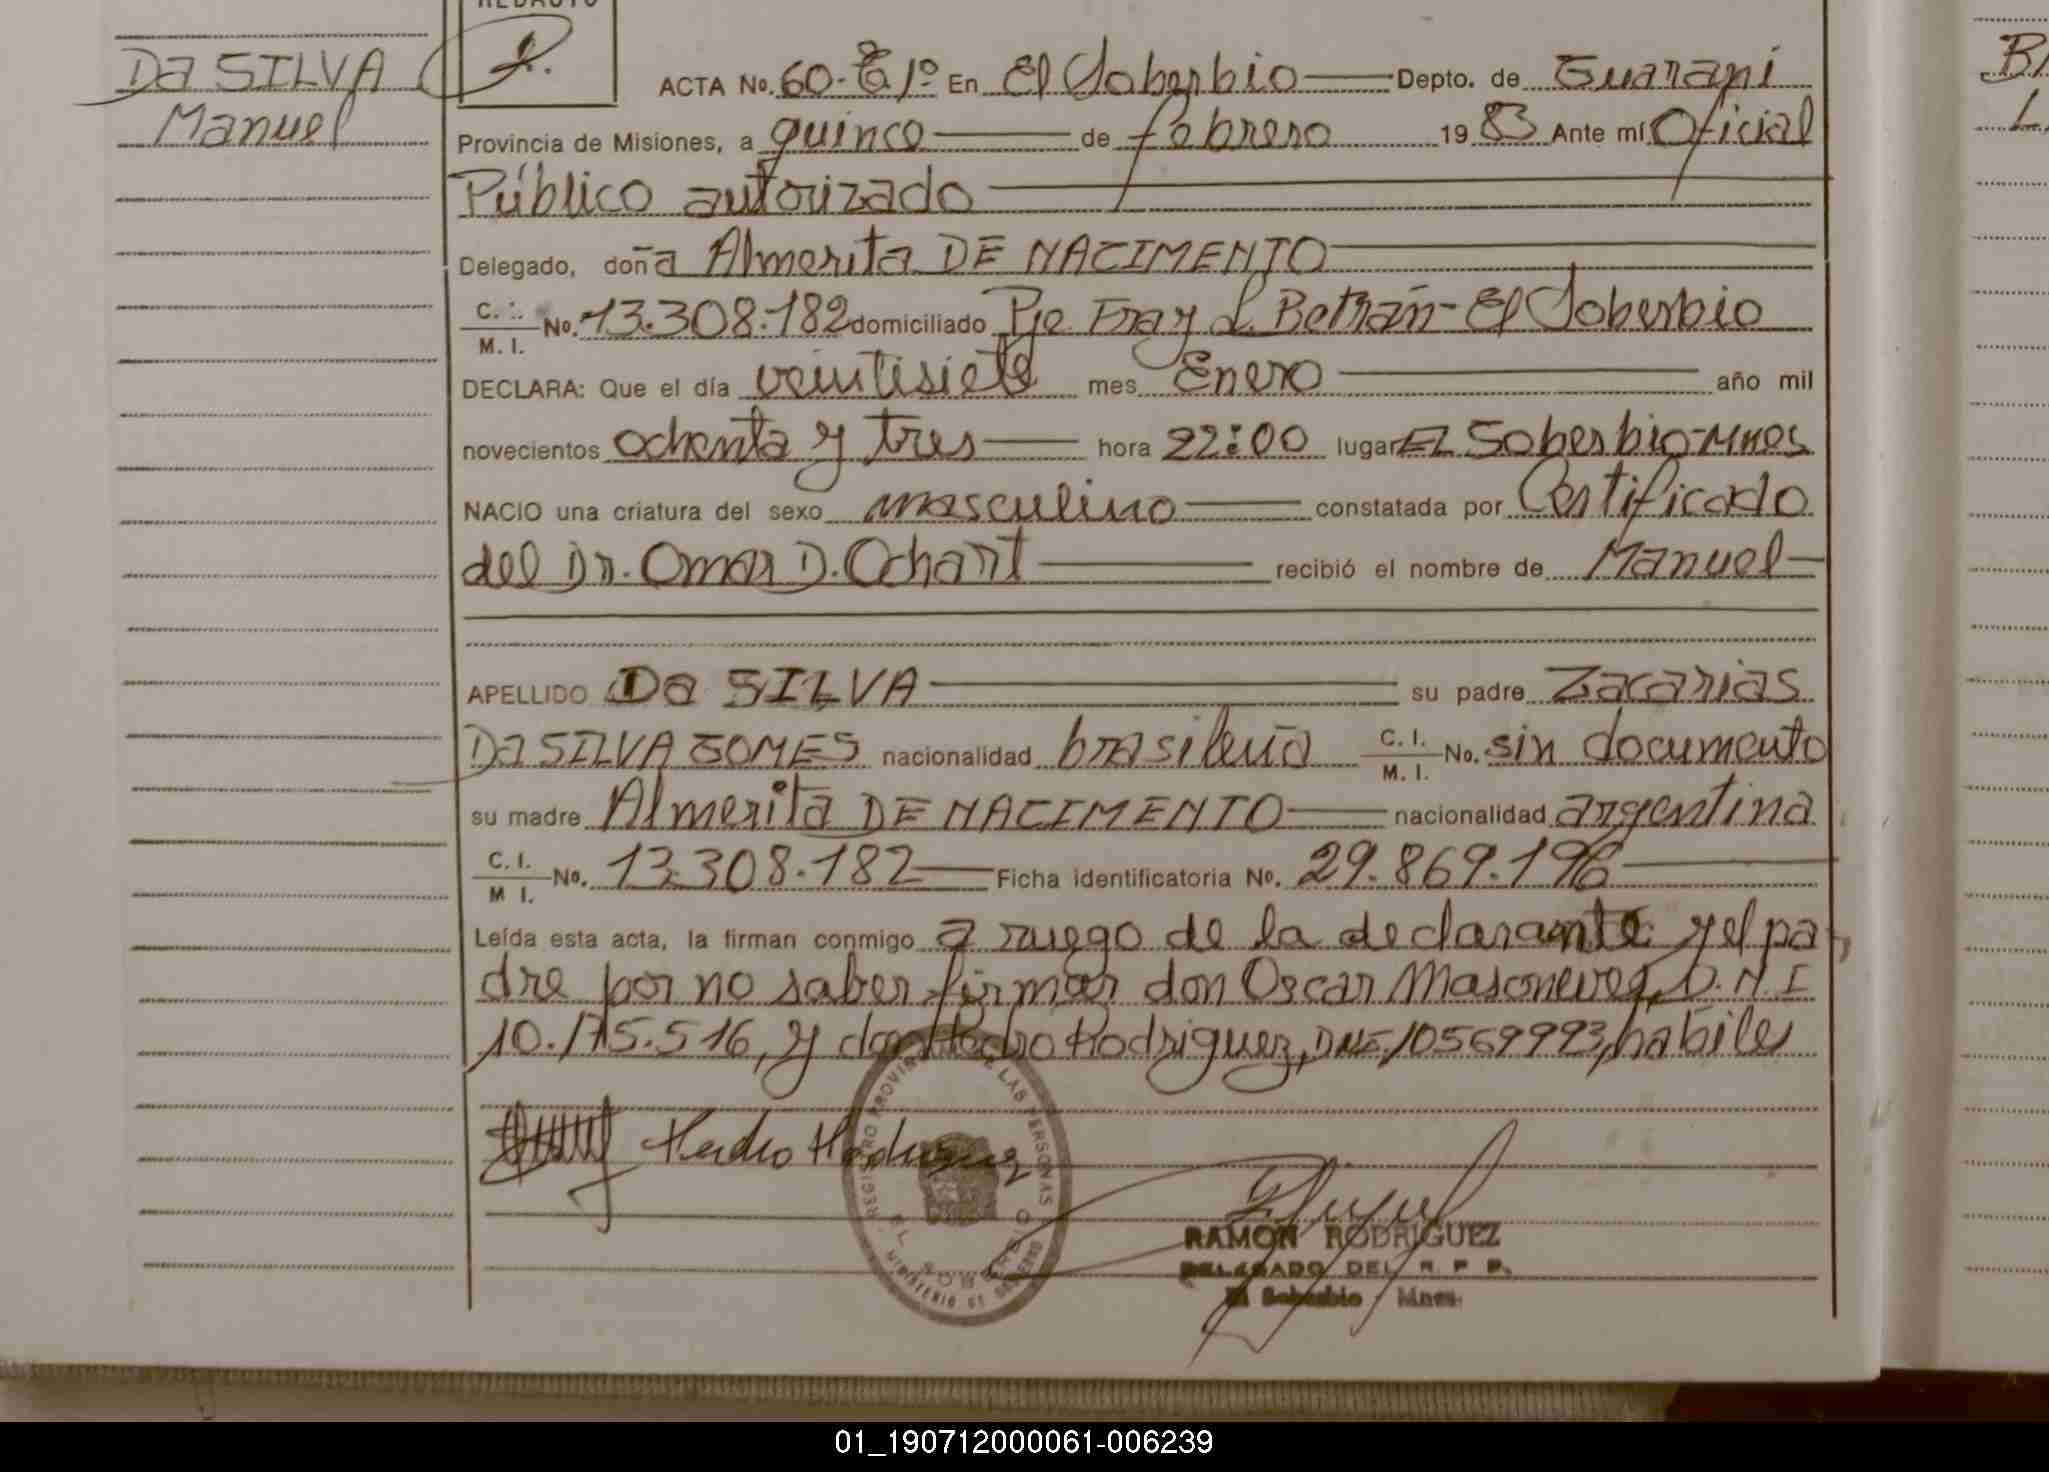 REDACTO
Da SILVA
Manuel
ACTA No. 60-T.1º En El Soberbio Depto. de Guaraní
Provincia de Misiones, a quince de febrero 1983 Ante mí Oficial
Público autorizado
Delegado, doña Almerita DE NACIMENTO
C. I. M. I. No. 13.308.182 domiciliado Pje Fray L. Beltrán - El Soberbio
DECLARA: Que el día veintisiete mes Enero año mil
novecientos ochenta y tres hora 22:00 lugar El Soberbio-Mnes
NACIO una criatura del sexo masculino constatada por Certificado
del Dr. Omar D. Ochart recibió el nombre de Manuel
APELLIDO Da SILVA su padre Zacarias
Da SILVA GOMES nacionalidad brasileña C. I. M. I. No. sin documento
su madre Almerita DE NACIMENTO nacionalidad argentina
C. I. M I. No. 13.308.182 Ficha identificatoria No. 29.869.196
Leída esta acta, la firman conmigo a ruego de la declarante y el pa
dre por no saber firmar don Oscar D.N.I
10.175.516, y don Pedro Rodriguez, DNI. 10569993, habiles
Pedro Rodriguez
REGISTRO PROVINCIAL DE LAS PERSONAS
MINISTERIO DE GOBIERNO
EL SOBERBIO
RAMON RODRIGUEZ
DELEGADO DEL R. P. P.
El Soberbio - Mnes.
01_190712000061-006239